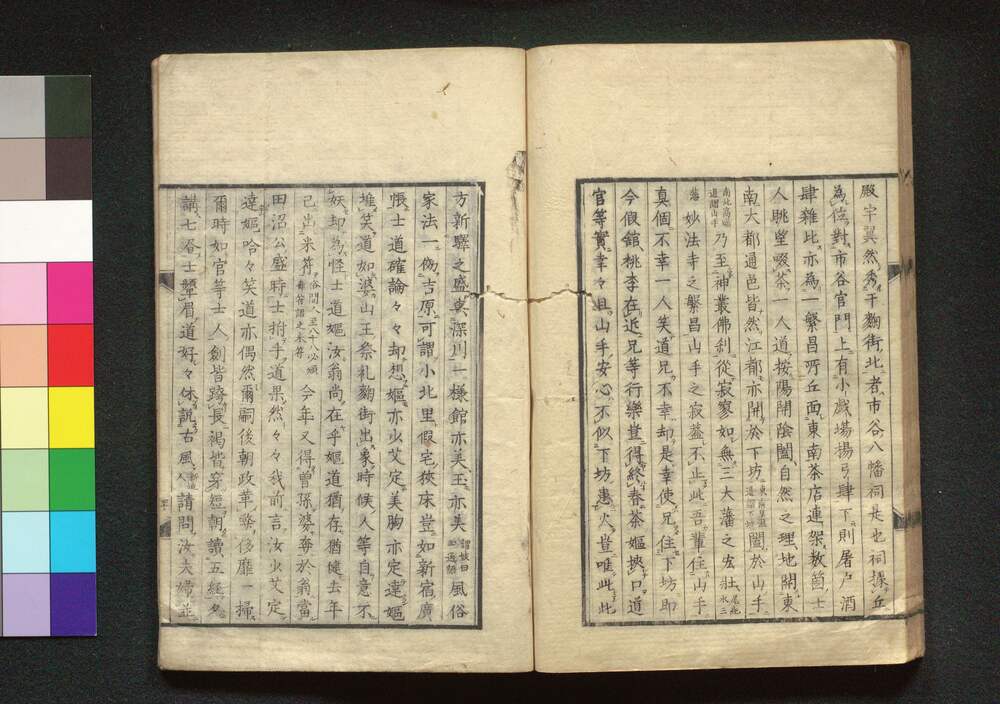 殿宇翼然秀于麹街北者市谷八幡祠是也祠據丘
為位對市谷官門上有小戲場揚弓肆下則屠戶酒
肆雜比亦為一繁昌所丘面東南茶店連架數箇士
人眺望啜茶一人道按陽開陰闔自然之理地開東
南大都通邑皆然江都亦開於下坊闔於山手
南北高燥通謂山手乃至神叢佛刹從寂寥如無三大藩之宏壯
藩妙法寺之繁昌山手之寂蓋不止此吾輩住山手
真個不幸一人笑道兄不幸却是幸使兄住下坊即
今假館桃李在近兄等行樂豈得終春茶嫗挾口道
官等實幸々且山手安心不似下坊患火豈唯此此
方新驛之盛與深川一樣館亦美玉亦美謂妓曰玉通語風俗
家法一傚吉原可謂小北里假宅狹床豈如新宿廣
帳士道確論々々却想嫗亦少艾定美胸亦定達嫗
堆笑道如婆山王祭礼麹街出象時候人等自意不
妖却為怪士道嫗汝翁尚在乎嫗道猶在猶健去年
已出米符俗間人至八十八必頒壽符謂之米符今年又得曾孫婆奪於翁當
田沼公盛時士拊手道果然々々我前言汝少艾定
達嫗哈々笑道亦偶然爾嗣後朝政革弊侈靡一掃
爾時如官等士人劍皆跨長褐皆穿短朝讀五經夕
講七書士顰眉道好々休說古風人請問汝夫婦並